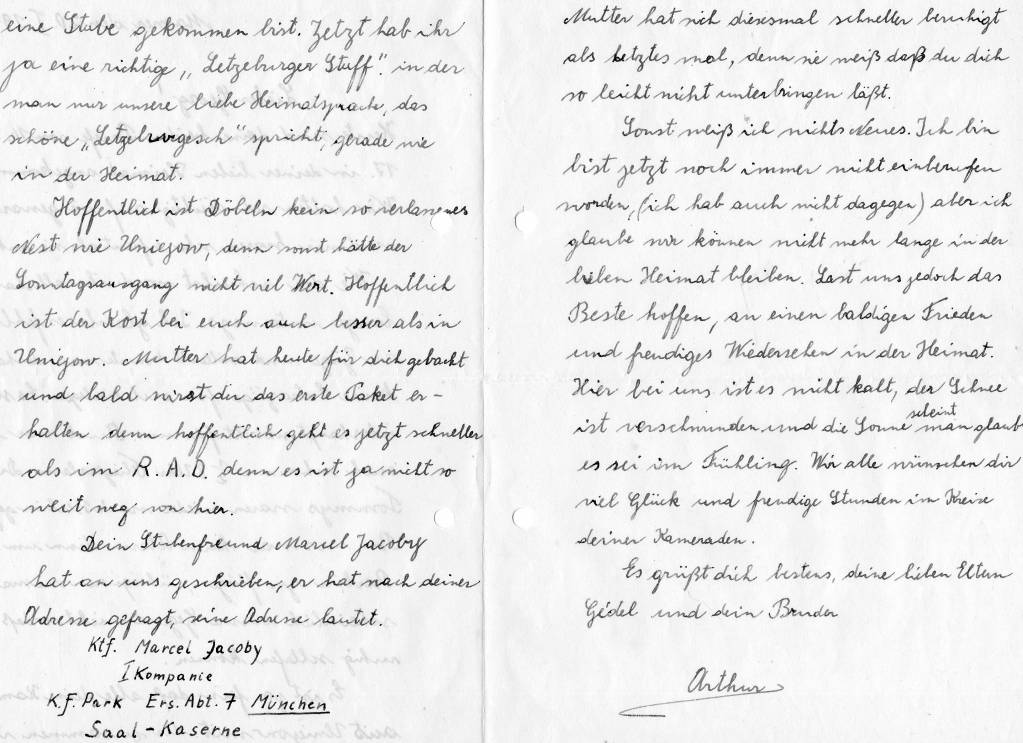 eine Stube gekommen bist. Jetzt hab ihr
ja eine richtige „Letzeburger Stuff". in der
man nur unsere liebe Heimatsprache, das
schöne „Letzeburgesch" spricht, gerade wie
in der Heimat.
Hoffentlich ist Döbeln kein so verlassenes
Nest wie Uniejow, denn sonst hätte der
Sonntagsausgang nicht viel Wert. Hoffentlich
ist der Kost bei euch auch besser als in
Uniejow. Mutter hat heute für dich gebackt
und bald wirst du das erste Paket er-
halten denn hoffentlich geht es jetzt schneller
als im R.A.D. denn es ist ja nicht so
weit weg von hier.
Dein Stubenfreund Marcel Jacoby
hat an uns geschrieben, er hat nach deiner
Adresse gefragt, seine Adresse lautet.
Ktf. Marcel Jacoby
I Kompanie
K.f. Park Ers. Abt. 7 München
Saal-Kaserne
Mutter hat sich diesesmal schneller beruhigt
als letztes mal, denn sie weiß daß du dich
so leicht nicht unterbringen läßt.
Sonst weiß ich nichts Neues. Ich bin
bist jetzt noch immer nicht einberufen
worden, (ich hab auch nicht dagegen) aber ich
glaube wir können nicht mehr lange in der
lieben Heimat bleiben. Last uns jedoch das
Beste hoffen, an einen baldigen Frieden
und freudiges Wiedersehen in der Heimat.
Hier bei uns ist es nicht kalt, der Schnee
ist verschwunden und die Sonne scheint man glaubt
es sei im Frühling. Wir alle wünschen dir
viel Glück und freudige Stunden im Kreise
deiner Kameraden.
Es grüßt dich bestens, deine lieben Eltern
Gédel und dein Bruder
Arthur